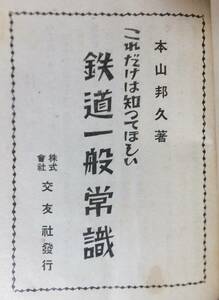 本山邦久著
これだけは知つてほしい
鉄道一般常識
株式會社 交友社發行